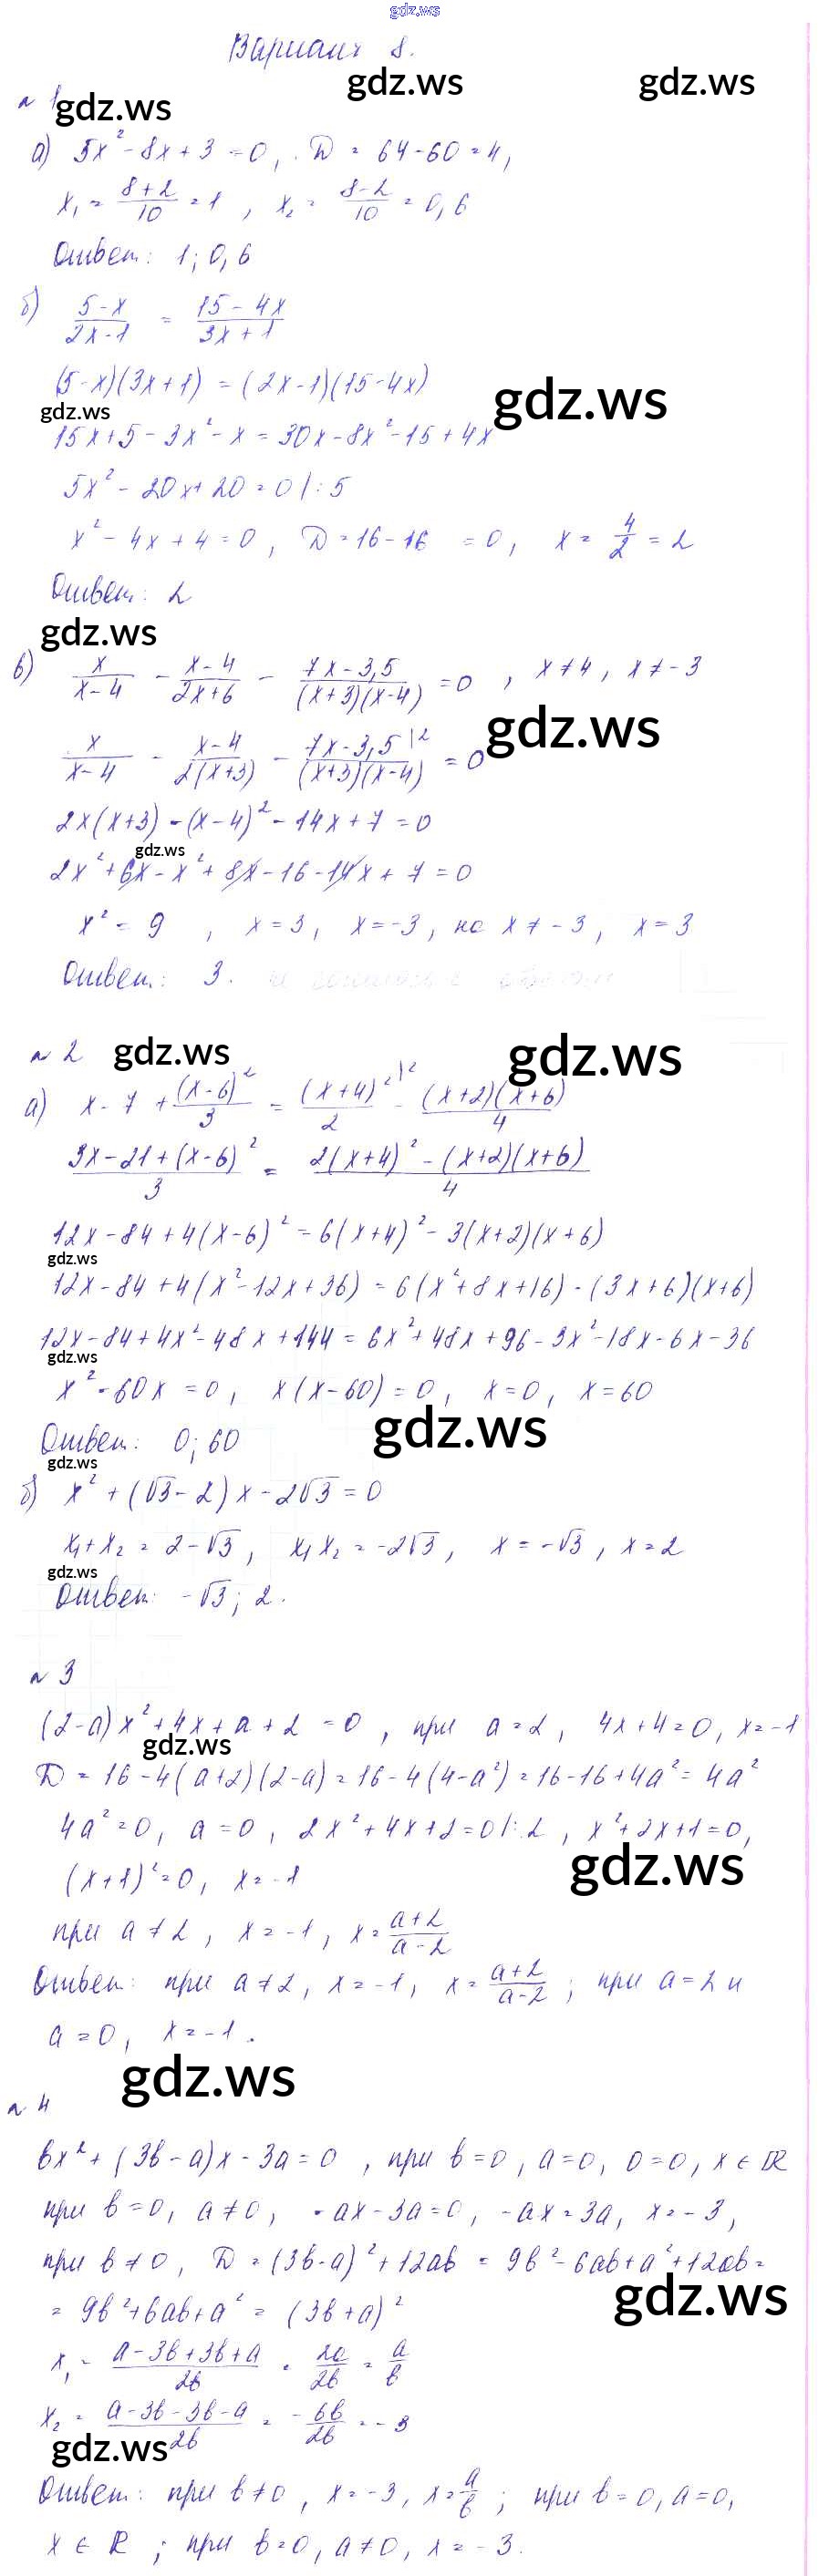 gdz.ws
Вариант 8.
gdz.ws gdz.ws
№ 1 gdz.ws
а) 5x² - 8x + 3 = 0, D = 64 - 60 = 4,
x₁ = (8+2)/10 = 1, x₂ = (8-2)/10 = 0,6
Ответ: 1; 0,6
б) (5-x)/(2x-1) = (15-4x)/(3x+1)
(5-x)(3x+1) = (2x-1)(15-4x)
gdz.ws gdz.ws
15x + 5 - 3x² - x = 30x - 8x² - 15 + 4x
5x² - 20x + 20 = 0 |:5
x² - 4x + 4 = 0, D = 16 - 16 = 0, x = 4/2 = 2
Ответ: 2
gdz.ws
в) x/(x-4) - (x-4)/(2x+6) - (7x-3,5)/((x+3)(x-4)) = 0, x ≠ 4, x ≠ -3
gdz.ws
x/(x-4) - (x-4)/(2(x+3)) - (7x-3,5)/((x+3)(x-4)) |2 = 0
2x(x+3) - (x-4)² - 14x + 7 = 0
gdz.ws
2x² + 6x - x² + 8x - 16 - 14x + 7 = 0
x² = 9, x = 3, x = -3, но x ≠ -3, x = 3
Ответ: 3.
№ 2 gdz.ws gdz.ws
а) x - 7 + (x-6)²/3 = (x+4)²/2 |2 - (x+2)(x+6)/4
(3x - 21 + (x-6)²)/3 = (2(x+4)² - (x+2)(x+6))/4
12x - 84 + 4(x-6)² = 6(x+4)² - 3(x+2)(x+6)
gdz.ws
12x - 84 + 4(x² - 12x + 36) = 6(x² + 8x + 16) - (3x+6)(x+6)
12x - 84 + 4x² - 48x + 144 = 6x² + 48x + 96 - 3x² - 18x - 6x - 36
gdz.ws
x² - 60x = 0, x(x-60) = 0, x = 0, x = 60
gdz.ws
Ответ: 0; 60
gdz.ws
б) x² + (√3 - 2)x - 2√3 = 0
x₁ + x₂ = 2 - √3, x₁x₂ = -2√3, x = -√3, x = 2
gdz.ws
Ответ: -√3; 2.
№ 3
(2-a)x² + 4x + a + 2 = 0, при a = 2, 4x + 4 = 0, x = -1
gdz.ws
D = 16 - 4(a+2)(2-a) = 16 - 4(4-a²) = 16 - 16 + 4a² = 4a²
4a² = 0, a = 0, 2x² + 4x + 2 = 0 |:2, x² + 2x + 1 = 0,
gdz.ws
(x+1)² = 0, x = -1
при a ≠ 2, x = -1, x = (a+2)/(a-2)
Ответ: при a ≠ 2, x = -1, x = (a+2)/(a-2); при a = 2 и
a = 0, x = -1.
gdz.ws
№ 4
bx² + (3b-a)x - 3a = 0, при b = 0, a = 0, 0 = 0, x ∈ R
при b = 0, a ≠ 0, -ax - 3a = 0, -ax = 3a, x = -3,
при b ≠ 0, D = (3b-a)² + 12ab = 9b² - 6ab + a² + 12ab =
gdz.ws
= 9b² + 6ab + a² = (3b+a)²
x₁ = (a-3b+3b+a)/2b = 2a/2b = a/b
x₂ = (a-3b-3b-a)/2b = -6b/2b = -3
gdz.ws
Ответ: при b ≠ 0, x = -3, x = a/b; при b = 0, a = 0,
x ∈ R; при b = 0, a ≠ 0, x = -3.